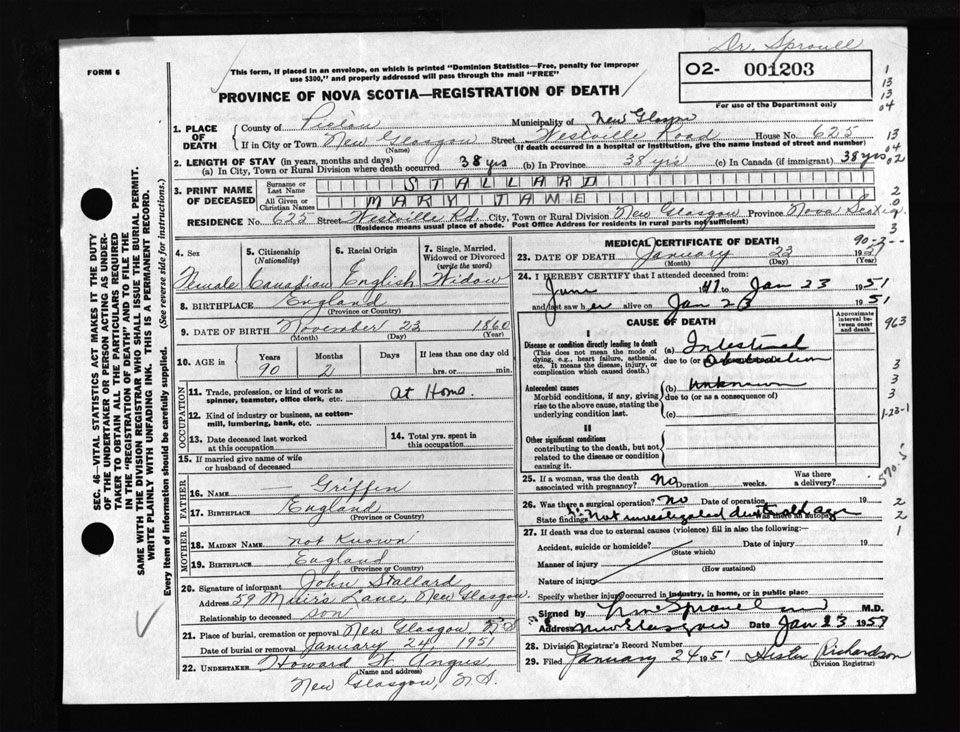 Dr. Sproull
FORM 6
This form, if placed in an envelope, on which is printed "Dominion Statistics—Free, penalty for improper
use $300," and properly addressed will pass through the mail "FREE"
02- 001203
For use of the Department only
PROVINCE OF NOVA SCOTIA—REGISTRATION OF DEATH
1. PLACE OF DEATH
County of Pictou Municipality of New Glasgow
If in City or Town New Glasgow Street Westville Road House No. 625
(Name) (If death occurred in a hospital or institution, give the name instead of street and number)
2. LENGTH OF STAY (in years, months and days)
(a) In City, Town or Rural Division where death occurred 38 yrs (b) In Province 38 yrs (c) In Canada (if immigrant) 38 yrs
3. PRINT NAME OF DECEASED
Surname or Last Name STALLARD
All Given or Christian Names MARY JANE
RESIDENCE No. 625 Street Westville Rd. City, Town or Rural Division New Glasgow Province Nova Scotia
(Residence means usual place of abode. Post Office Address for residents in rural parts not sufficient)
4. Sex
Female
5. Citizenship (Nationality)
Canadian
6. Racial Origin
English
7. Single, Married, Widowed or Divorced (write the word)
Widow
8. BIRTHPLACE England
(Province or Country)
9. DATE OF BIRTH November 23 1860
(Month) (Day) (Year)
10. AGE in Years Months Days If less than one day old
90 2 hrs. or min.
OCCUPATION
11. Trade, profession, or kind of work as spinner, teamster, office clerk, etc. At Home.
12. Kind of industry or business, as cotton-mill, lumbering, bank, etc.
13. Date deceased last worked at this occupation
14. Total yrs. spent in this occupation
15. If married give name of wife or husband of deceased
FATHER
16. NAME Griffin
17. BIRTHPLACE England
(Province or Country)
MOTHER
18. MAIDEN NAME not Known
19. BIRTHPLACE England
(Province or Country)
20. Signature of informant John Stallard
Address 59 Muirs Lane, New Glasgow.
Relationship to deceased son
21. Place of burial, cremation or removal New Glasgow N S
Date of burial or removal January 24, 1951
22. UNDERTAKER Howard W. Angus
(Name and address)
New Glasgow, N.S.
MEDICAL CERTIFICATE OF DEATH
23. DATE OF DEATH January 23 195
(Month) (Day) (Year)
24. I HEREBY CERTIFY that I attended deceased from:
June 41 to Jan 23 1951
and last saw her alive on Jan 23 1951
CAUSE OF DEATH
Approximate interval between onset and death
I
Disease or condition directly leading to death
(This does not mean the mode of dying, e.g., heart failure, asthenia, etc. It means the disease, injury, or complication which caused death.)
(a) Intestinal
due to (or Obstruction
Antecedent causes
Morbid conditions, if any, giving rise to the above cause, stating the underlying condition last.
(b) Unknown
due to (or as a consequence of)
(c)
II
Other significant conditions
contributing to the death, but not related to the disease or condition causing it.
25. If a woman, was the death associated with pregnancy? No Duration weeks. Was there a delivery?
26. Was there a surgical operation? No Date of operation 19
State findings Not investigated due to old age Was there an autopsy
27. If death was due to external causes (violence) fill in also the following:—
Accident, suicide or homicide? Date of injury 19
(State which)
Manner of injury
(How sustained)
Nature of injury
Specify whether injury occurred in industry, in home, or in public place
Signed by Sproull M.D.
Address New Glasgow Date Jan 23 195
28. Division Registrar's Record Number
29. Filed January 24 1951 Hester Richardson
(Division Registrar)
SEC. 46—VITAL STATISTICS ACT MAKES IT THE DUTY
OF THE UNDERTAKER OR PERSON ACTING AS UNDER-
TAKER TO OBTAIN ALL THE PARTICULARS REQUIRED
IN THE "REGISTRATION OF DEATH" AND TO FILE THE
SAME WITH THE DIVISION REGISTRAR WHO SHALL ISSUE THE BURIAL PERMIT.
WRITE PLAINLY WITH UNFADING INK. THIS IS A PERMANENT RECORD.
Every item of information should be carefully supplied. (See reverse side for instructions.)
1
13
13
04
13
04
02
2
0
2
3
90-2--
963
3
3
3
1-23-1
570.5
2
2
1